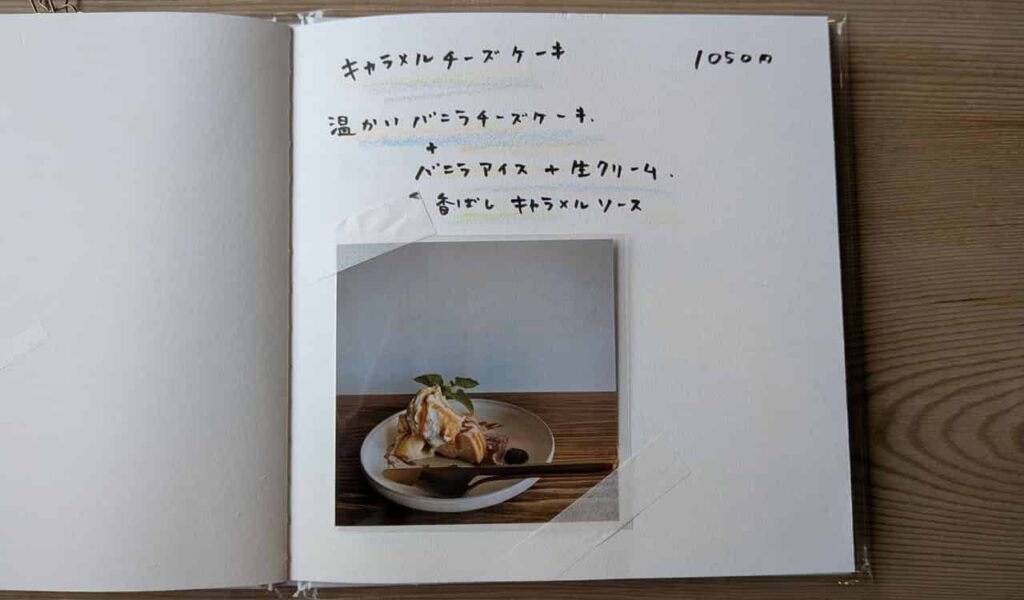 キャラメルチーズケーキ 1050円
温かいバニラチーズケーキ.
+
バニラアイス + 生クリーム.
香ばしキャラメルソース